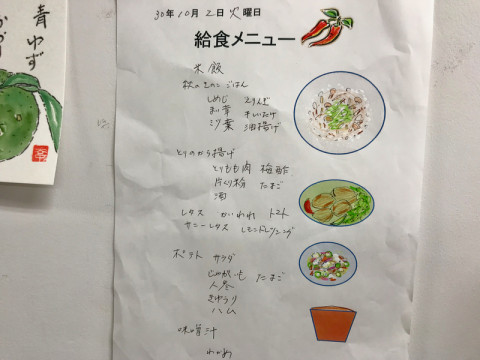 青ゆず
30年10月2日火曜日
給食メニュー
米飯
秋のきのこごはん
しめじ えりんぎ
まい茸 生しいたけ
ミツ葉 油揚げ
とりのから揚げ
とりもも肉 梅酢
片くり粉 たまご
酒
レタス かいわれ トマト
サニーレタス レモンドレッシング
ポテトサラダ
じゃがいも たまご
人参
きゅうり
ハム
味噌汁
わかめ